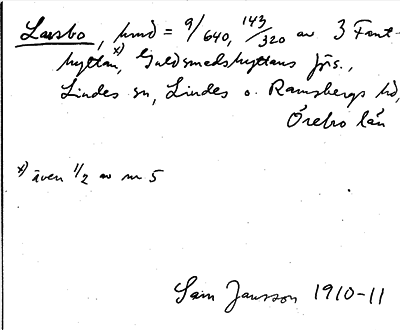 Larsbo, hmd = 9/640, 143/320 av 3 Fant-
hyttan x), Guldsmedshyttans jfs.,
Lindes sn, Lindes o. Ramsbergs hd,
Örebro län
x) även 1/2 av nr 5
Sam Jansson 1910-11